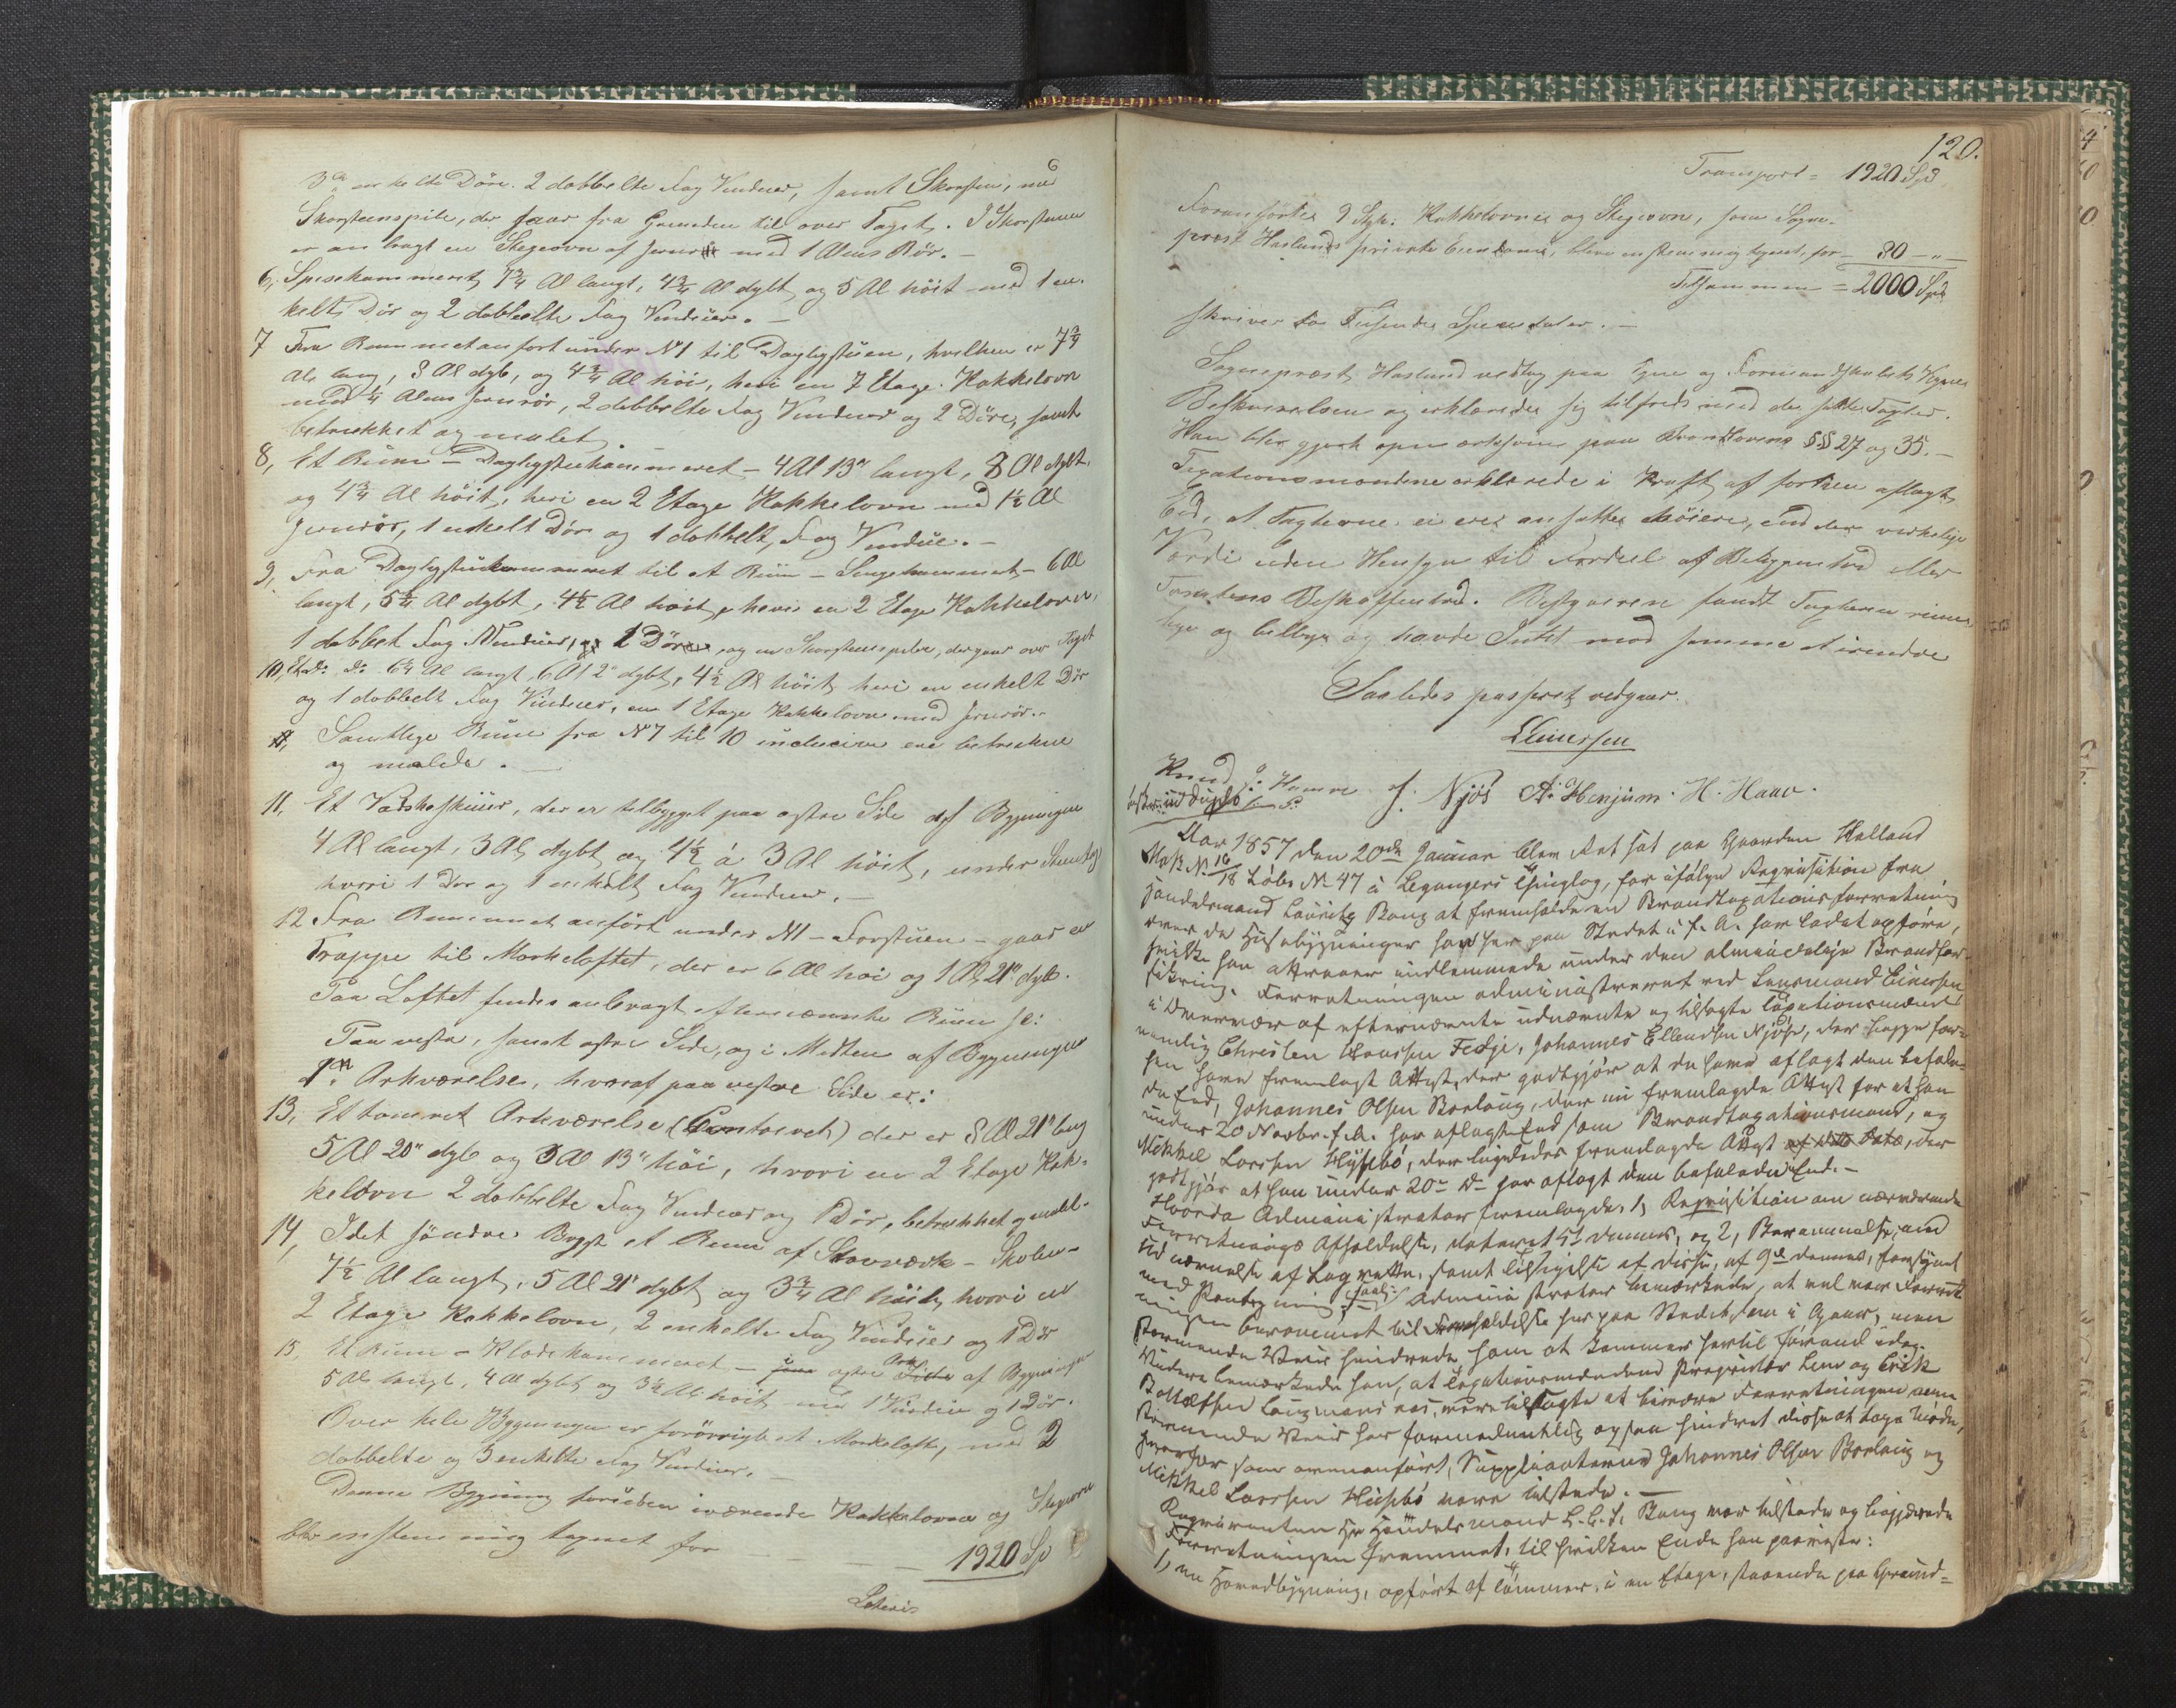 3de enkelte Döre. 2 dobbelte Fag Vinduer, samt Skorsten, med
Skorsteenspibe, der gaar fra Grunden til over Taget. I Skorstenen
er anbragt en Stegeovn af Jern med 1 Alens Rör. —
6, Spisekammeret, 7¾ Al langt, 4¾ Al dybt og 5 Al höit med 1 en-
kelt Dör og 2 dobbelte Fag Vinduer. —
7 Fra Rummet anfört under No 1 til Dagligstuen, hvilken er 7¾
Al. lang, 8 Al dyb, og 4¾ Al höi, heri en 7 Etage Kakkelovn
med 4 Alens Jernrör, 2 dobbelte Fag Vinduer og 2 Döre, samt
betrukket og malet.
8, Et Rum — Dagligstuekammeret — 4 Al 13" langt, 8 Al dybt
og 4¾ Al höit, heri en 2 Etage Kakkelovn med 1½ Al
Jernrör, 1 enkelt Dör og 1 dobbelt Fag Vindue. —
9, Fra Dagligstuekammeret til et Rum — Sengekammeret — 6 Al
langt, 5¾ Al dybt, 4½ Al höit, hvori en 2 Etage Kakkelovn,
1 dobbelt Fag Vinduer, 2 Döre og en Skorsteenspibe, der gaar over Taget
10, Et do do 6¼ Al langt 6 Al 2" dybt, 4½ Al höit heri en enkelt Dör
og 1 dobbelt Fag Vinduer, en 1 Etage Kakkelovn med Jernrör.
Samtlige Rum fra No 7 til 10 inclusive ere betrukne
og malede. —
11, Et Vadskeskuur, der er tilbygget paa östre Side af Bygningen
4 Al langt, 3 Al dybt og 4½ á 3 Al höit, under Steentag
hvori 1 Dör og 1 enkelt Fag Vinduer. —
12 Fra Rummet anfört under No 1 — Forstuen — gaar en
Trappe til Mörkeloftet, der er 6 Al höi og 1 Al 21" dyb.
Paa Loftet findes anbragt efternævnte Rum s:
Paa vestre, samt östre Side, og i Midten af Bygningen
Arkværelse, hvoraf paa vestre Side er:
13, Et tömret Arkværelse (Contoiret) der er 8 Al 21" lang
5 Al 20" dyb og 3 Al 13" höi, hvori en 2 Etage Kak-
kelovn 2 dobbelte Fag Vinduer og 1 Dör, betrukket og malet.
14, I det söndre Bygst et Rum af Stavværk — Skolen —
7½ Al langt, 5 Al 21" dybt og 3¾ Al höit, hvori en
2 Etage Kakkelovn, 2 enkelte Fag Vinduer og 1 Dör
15, Et Rum — Klædekammeret — i östre Ark af Bygningen
5 Al langt, 4 Al dybt og 3½ Al höit med 1 Vindue og 1 Dör.
Over hele Bygningen er forövrigt et Mörkeloft, med 2
dobbelte og 3 enkelte Fag Vinduer. —
Denne Bygning foruden iværende Kakkelovne og Stegeovn
blev enstemmig taxeret for — 1920 Sp
Lateris
120.
Transport = 1920 Spd
Foranförte 9 Styk. Kakkelovne og Stegeovn, som Sogne-
præst Haslunds private Eiendom, bleve enstemmig taxeret for — 80 — " —
Tilsammen = 2000 Spd
skriver To Tusende Speciedaler. —
Sognepræst Haslund vedtog paa egne og Formandskabets Vegne
Beskrivelsen og erklærede sig tilfreds med de satte Taxter.
Han blev gjort opmærksom paa Brandlovens §§ 27 og 35. —
Taxationsmændene erklærede i Kraft af forhen aflagt
Eed, at Taxterne ei ere ansatte höiere, end den virkelige
Værdi uden Hensyn til Fordeel af Beliggenhed eller
Tomtens Beskaffenhed. Bestyreren fandt Taxterne rime-
lige og billige og havde Intet mod samme at erindre
Saaledes passeret vedgaar.
Einersen
Knud J. Hamre J. Njös A. Henjum. H. Haav.
Aar 1857 den 20de Januar blev Ret sat paa Gaarden Halland
Mat. No 16/18 Löbe No 47 i Leganger Thinglag, for ifölge Reqvisition fra
Handelsmand Lauritz Bang at fremholde en Brandtaxationsforretning
over de Huusebygninger han her paa Stedet i f. A. har ladet opföre,
hvilke han attraaer indlemmede under den almindelige Brandfor-
sikring. Forretningen administreret ved Lensmand Einersen
i Overvær af efternævnte udnævnte og tilsagte Taxationsmænd
nemlig Christen Hanssen Fedje, Johannes Ellendsen Njös, der begge for-
hen have fremlagt Attest, der godtgjör at de have aflagt den befale-
de Eed, Johannes Olsen Borlaug, der nu fremlagde Attest for at han
under 20 Novbr. f. A. har aflagt Eed som Brandtaxationsmand, og
Mikkel Larssen Huusebö, der ligeledes fremlagde Attest, der
godtgjör at han under 20de d. har aflagt den befalede Eed. —
Hvorda Administrator fremlagde, 1, Reqvisition om nærværende
Forretnings Afholdelse, dateret 5t dennes, og 2, Berammelse med
Udnævnelse af Lagrette, samt Tilsigelse af disse, af 9de dennes, forsynet
med Paategning. Administrator bemærkede, at vel var Forret-
ningen berammet til afholdelse her paa Stedet den i Gaar, men
stormende Veir hindrede ham at komme hertil förend idag.
Videre bemærkede han, at Taxationsmændene Proprietær Lem og Erik
Botolfsen Langmans aas, vare tilsagte at bivære Forretningen men
stormende Veir har formodentlig ogsaa hindret disse at tage Möde,
hvorfor som ovenanfört, Suppleanterne Johannes Olsen Borlaug og
Mikkel Larssen Huusebö vare tilstede. —
Reqvirenten Hr Handelsmand L. C. S. Bang var tilstede og begjærede
Forretningen fremmet, til hvilken Ende han paaviste:
1, en Hovedbygning, opfört af Tömmer, i en Etage, staaende paa Grund-